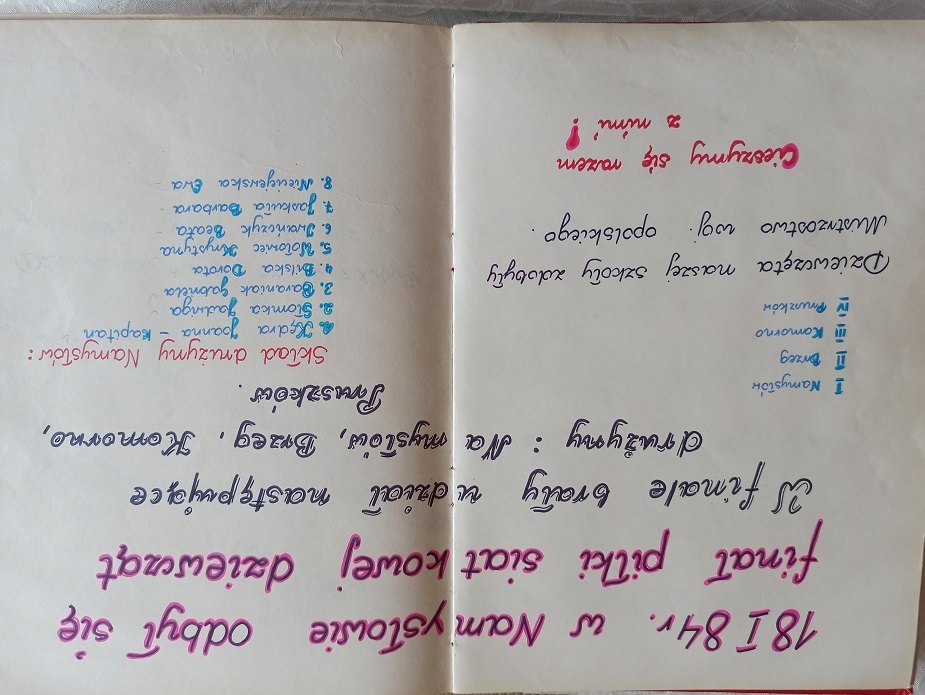 18 I 84r. w Namysłowie odbył się
finał piłki siatkowej dziewcząt
W finale brały udział następujące
drużyny : Namysłów, Brzeg, Komorno,
Pruszków.
I Namysłów
II Brzeg
III Komorno
IV Pruszków
Dziewczęta naszej szkoły zdobyły
Mistrzostwo woj. opolskiego.
Cieszymy się razem
z nimi!
Skład drużyny Namysłów:
1. Kędra Joanna - kapitan
2. Słomka Jadwiga
3. Baraniak Gabriela
4. Bilska Dorota
5. Wołowiec Krystyna
6. Iwańczyk Beata
7. Jaskuła Barbara
8. Ewa